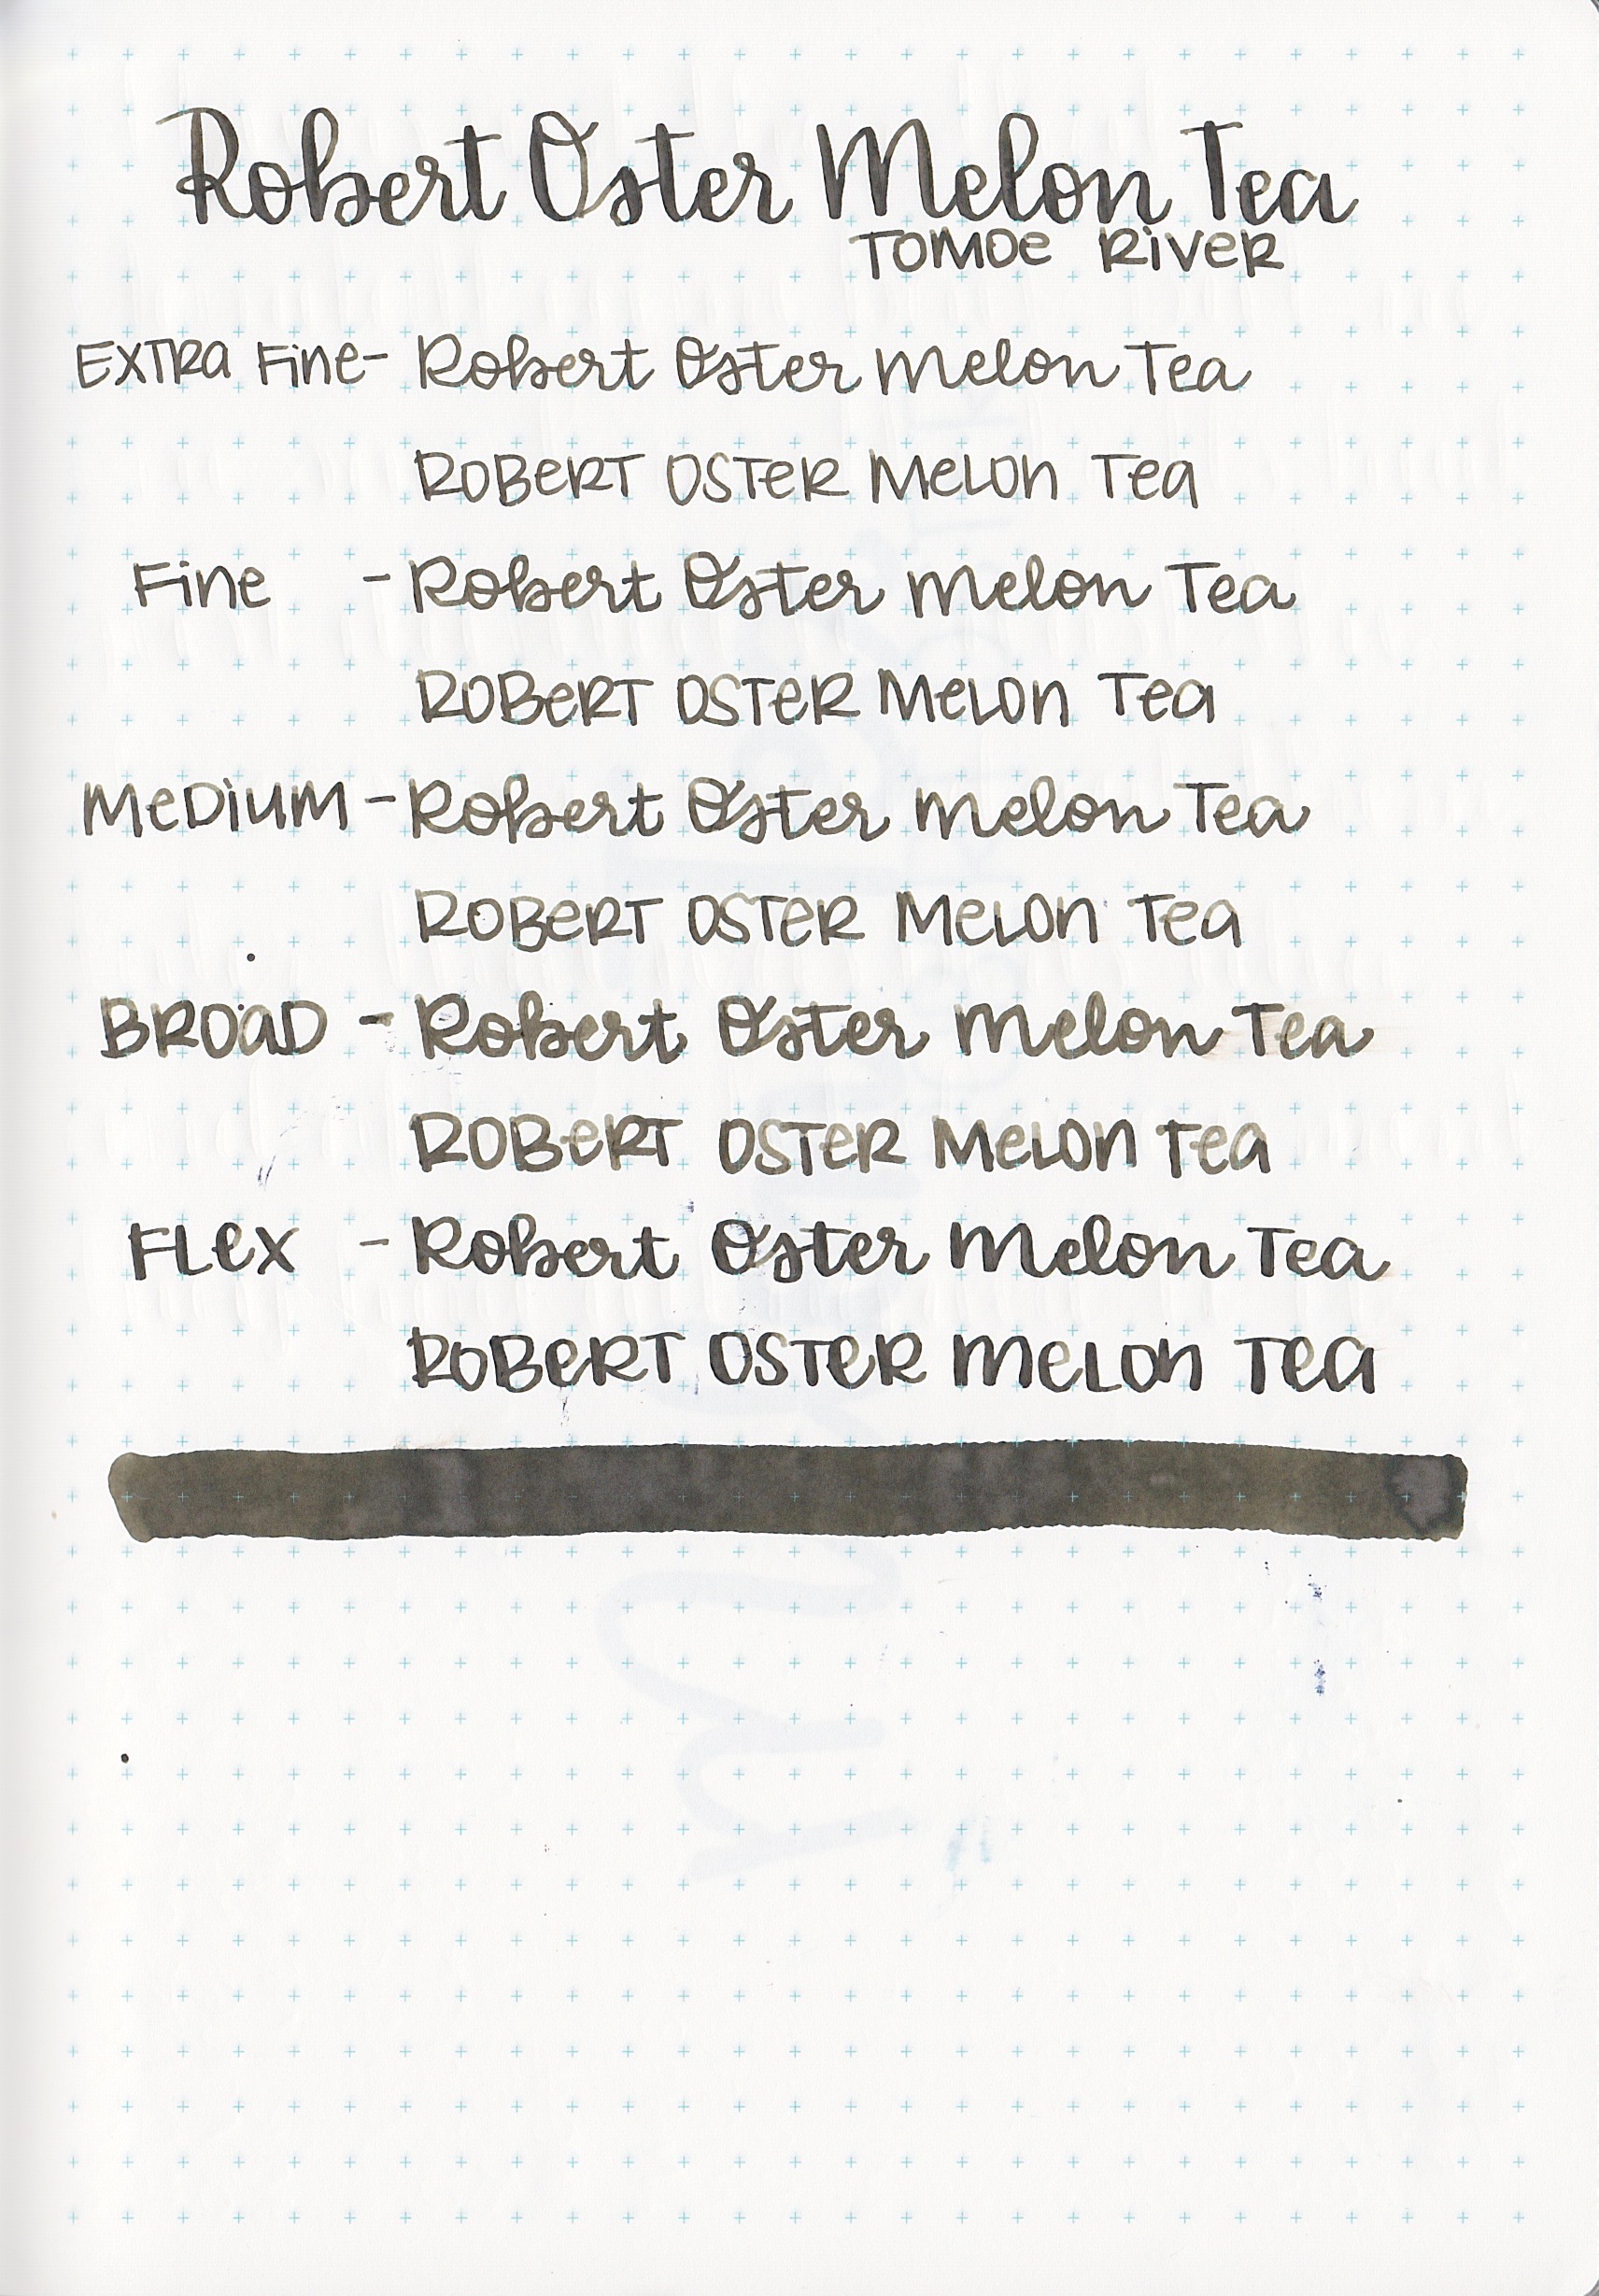 Robert Oster Melon Tea
TOMOe RiveR
EXTRa Fine- Robert Oster Melon Tea
ROBeRT OSTeR MeLOn Tea
Fine - Robert Oster Melon Tea
ROBeRT OSTeR MeLOn Tea
MeDiuM - Robert Oster Melon Tea
ROBeRT OSTeR MeLOn Tea
BROaD - Robert Oster Melon Tea
ROBeRT OSTeR MeLOn Tea
FLex - Robert Oster Melon Tea
ROBeRT OSTeR MeLOn Tea